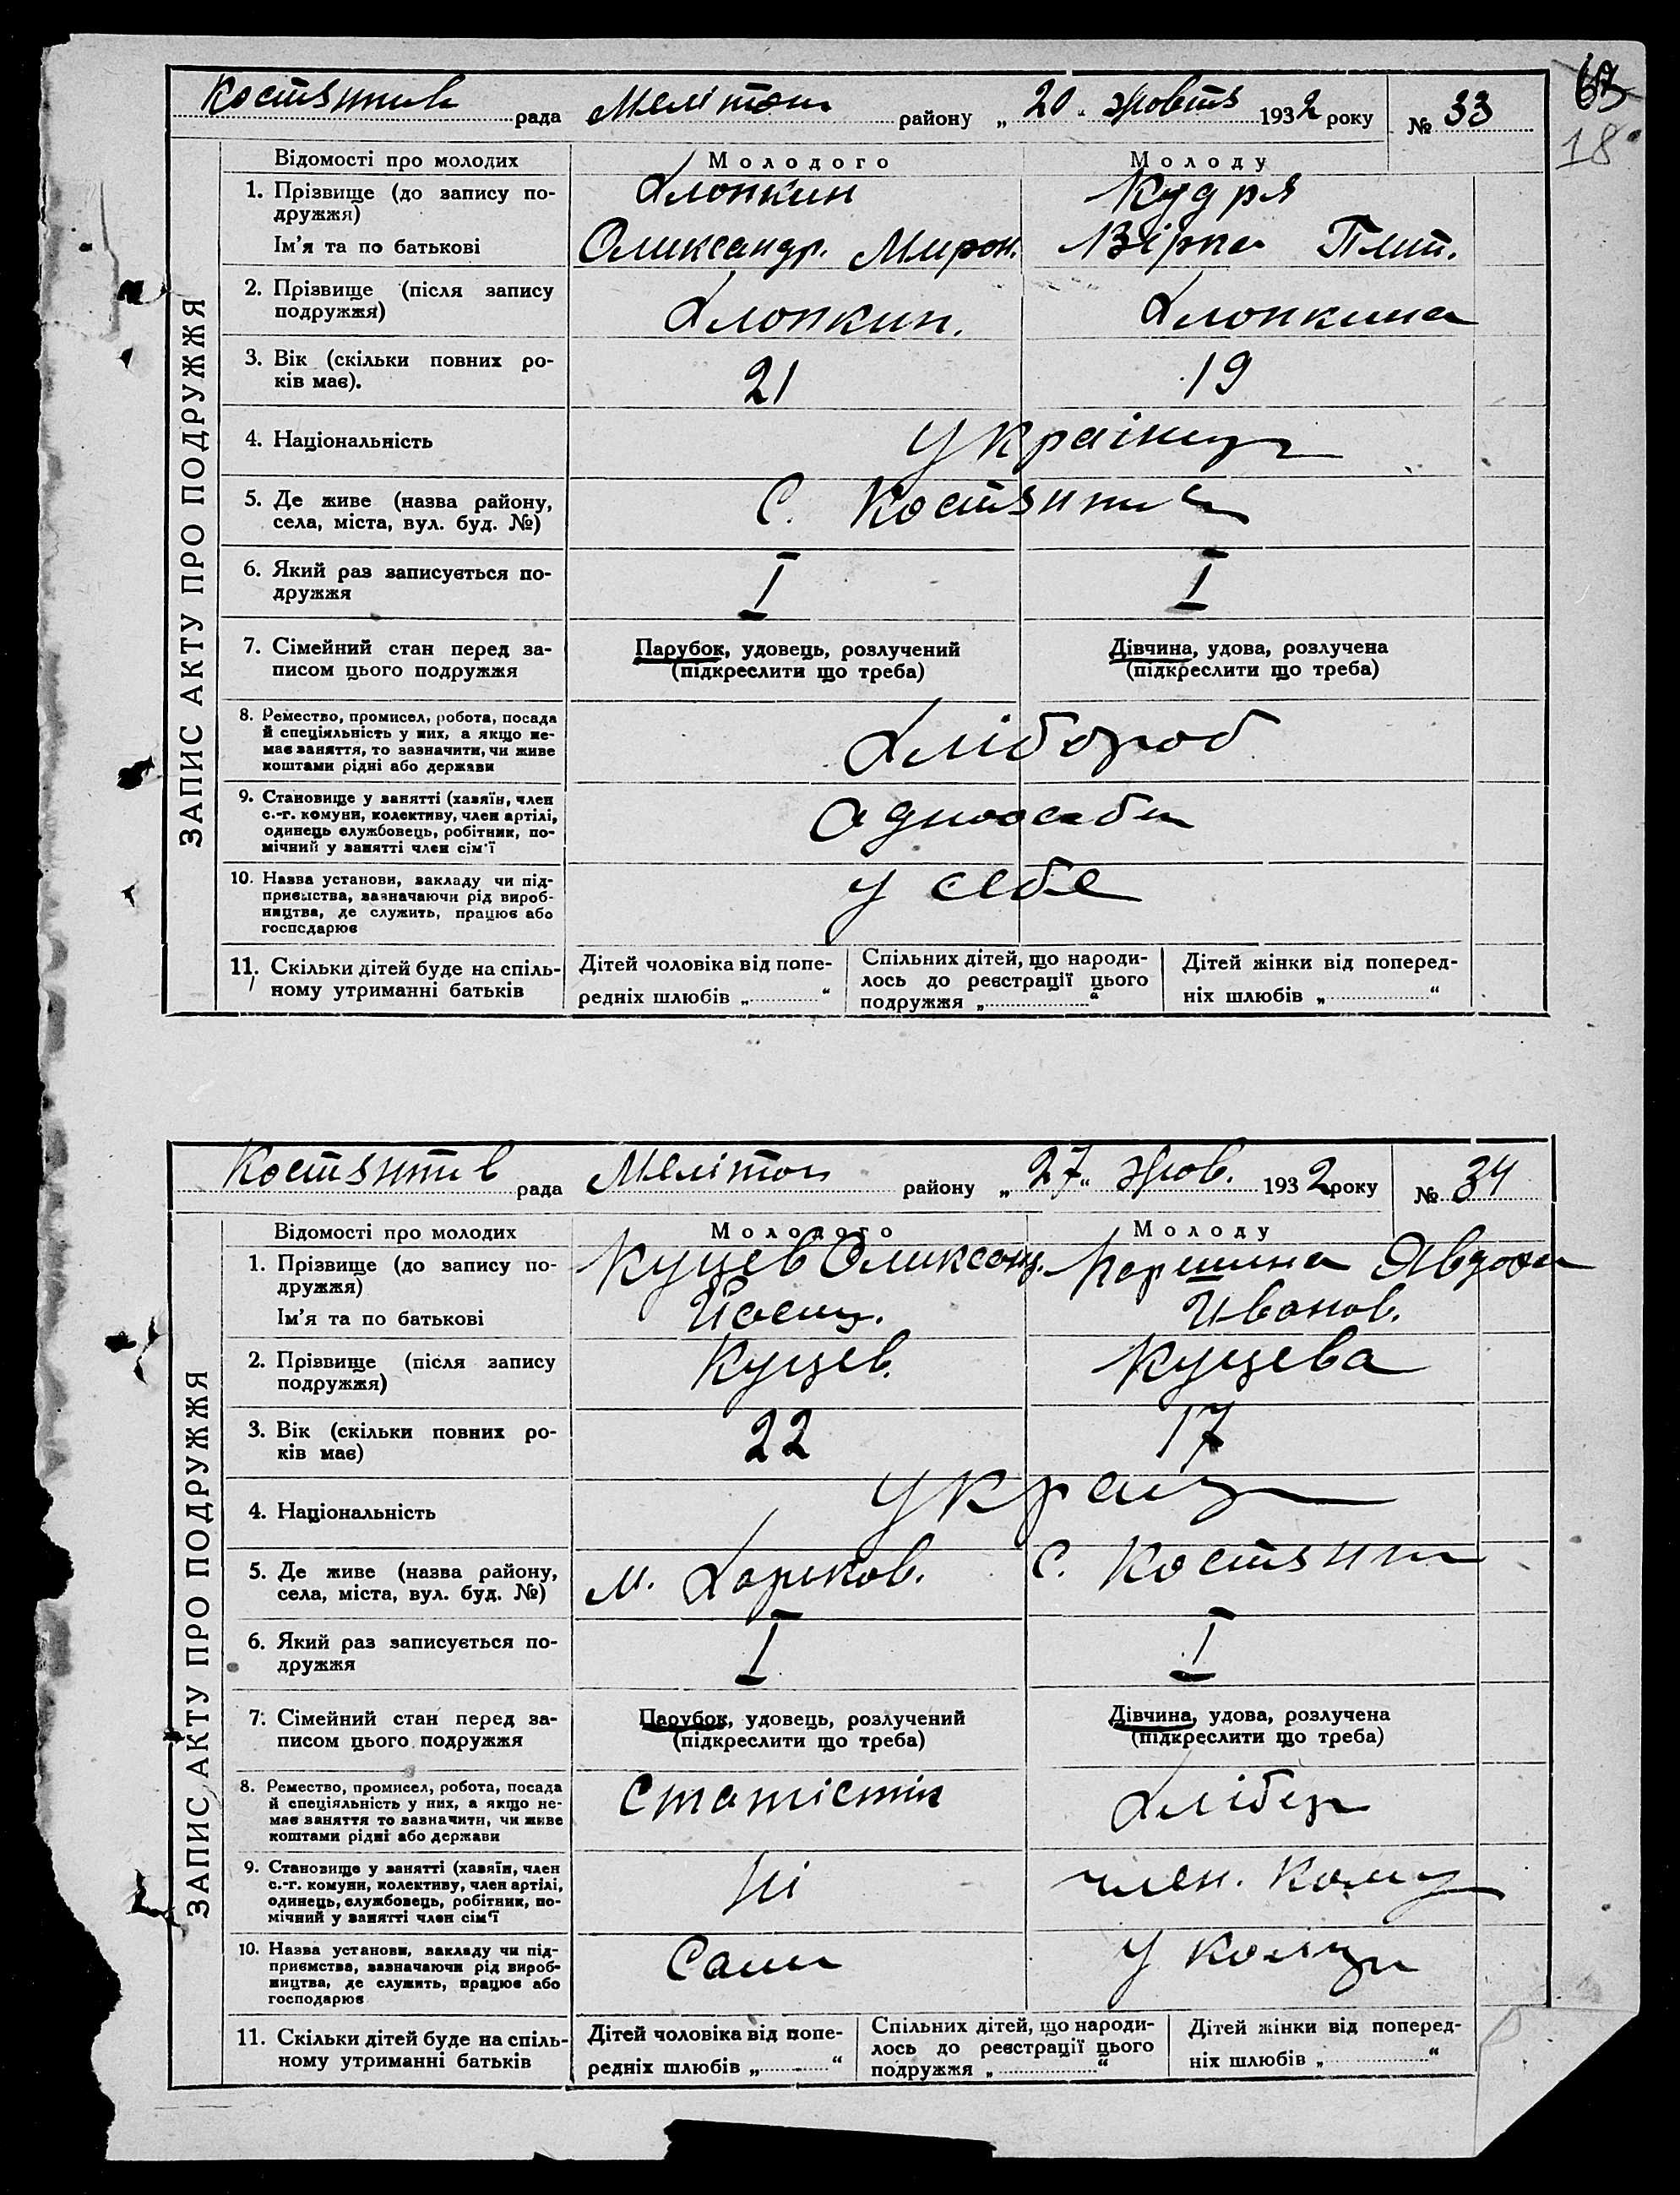 63
18
Костянтів рада Мелітоп району „20“ жовтя 1932 року № 33
ЗАПИС АКТУ ПРО ПОДРУЖЖЯ
Відомості про молодих Молодого Молоду
1. Прізвище (до запису по-
дружжя) Хлопкин Кудря
Ім’я та по батькові Олександр. Мирон. Вірка Плат.
2. Прізвище (після запису
подружжя) Хлопкин. Хлопкина
3. Вік (скільки повних ро-
ків має). 21 19
4. Національність Українці
5. Де живе (назва району,
села, міста, вул. буд. №) С. Костянтів
6. Який раз записується по-
дружжя I I
7. Сімейний стан перед за- Парубок, удовець, розлучений Дівчина, удова, розлучена
писом цього подружжя (підкреслити що треба) (підкреслити що треба)
8. Ремество, промисел, робота, посада
й спеціяльність у них, а якщо не-
має заняття, то зазначити, чи живе
коштами рідні або держави Хлібороб
9. Становище у занятті (хазяїн, член
с.-г. комуни, колективу, член артілі,
одинець службовець, робітник, по-
мічний у занятті член сім’ї Одноосібн
10. Назва установи, закладу чи під-
приємства, зазначаючи рід вироб-
ництва, де служить, працює або
господарює у себе
11. Скільки дітей буде на спіль- Дітей чоловіка від попе- Спільних дітей, що народи- Дітей жінки від поперед-
ному утриманні батьків редніх шлюбів „ “ лось до реєстрації цього ніх шлюбів „ “
подружжя „ “
Костянтів рада Мелітоп району „27“ жов. 1932 року № 34
ЗАПИС АКТУ ПРО ПОДРУЖЖЯ
Відомості про молодих Молодого Молоду
1. Прізвище (до запису по- Куцев Олександ. Явдоха
дружжя)
Ім’я та по батькові Иванов.
2. Прізвище (після запису
подружжя) Куцев. Куцева
3. Вік (скільки повних ро-
ків має) 22 17
4. Національність Україц
5. Де живе (назва району,
села, міста, вул. буд. №) м. Харьков. С. Костянт
6. Який раз записується по-
дружжя I I
7. Сімейний стан перед за- Парубок, удовець, розлучений Дівчина, удова, розлучена
писом цього подружжя (підкреслити що треба) (підкреслити що треба)
8. Ремество, промисел, робота, посада
й спеціяльність у них, а якщо не-
має заняття то зазначити, чи живе
коштами рідні або держави Статістік Хлібор
9. Становище у занятті (хазяїн, член
с.-г. комуни, колективу, член артілі,
одинець, службовець, робітник, по-
мічний у занятті член сім’ї Ні член. Кому
10. Назва установи, закладу чи під-
приємства, зазначаючи рід вироб-
ництва, де служить, працює або
господарює у комун
11. Скільки дітей буде на спіль- Дітей чоловіка від попе- Спільних дітей, що народи- Дітей жінки від поперед-
ному утриманні батьків редніх шлюбів „ “ лось до реєстрації цього ніх шлюбів „ “
подружжя „ “